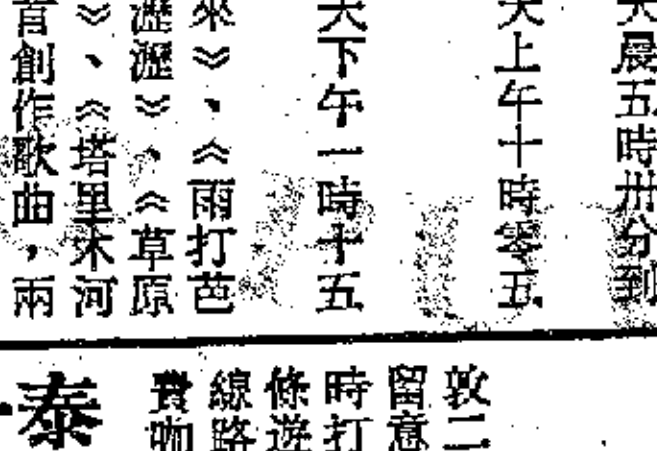 晨五時卅分到
天上午十時零五
天下午一時十五
來》、《雨打芭
瀝瀝》、《草原
》、《塔里木河
首創作歌曲，兩
敦二
留意
時打
條遊
線路
費咖
泰